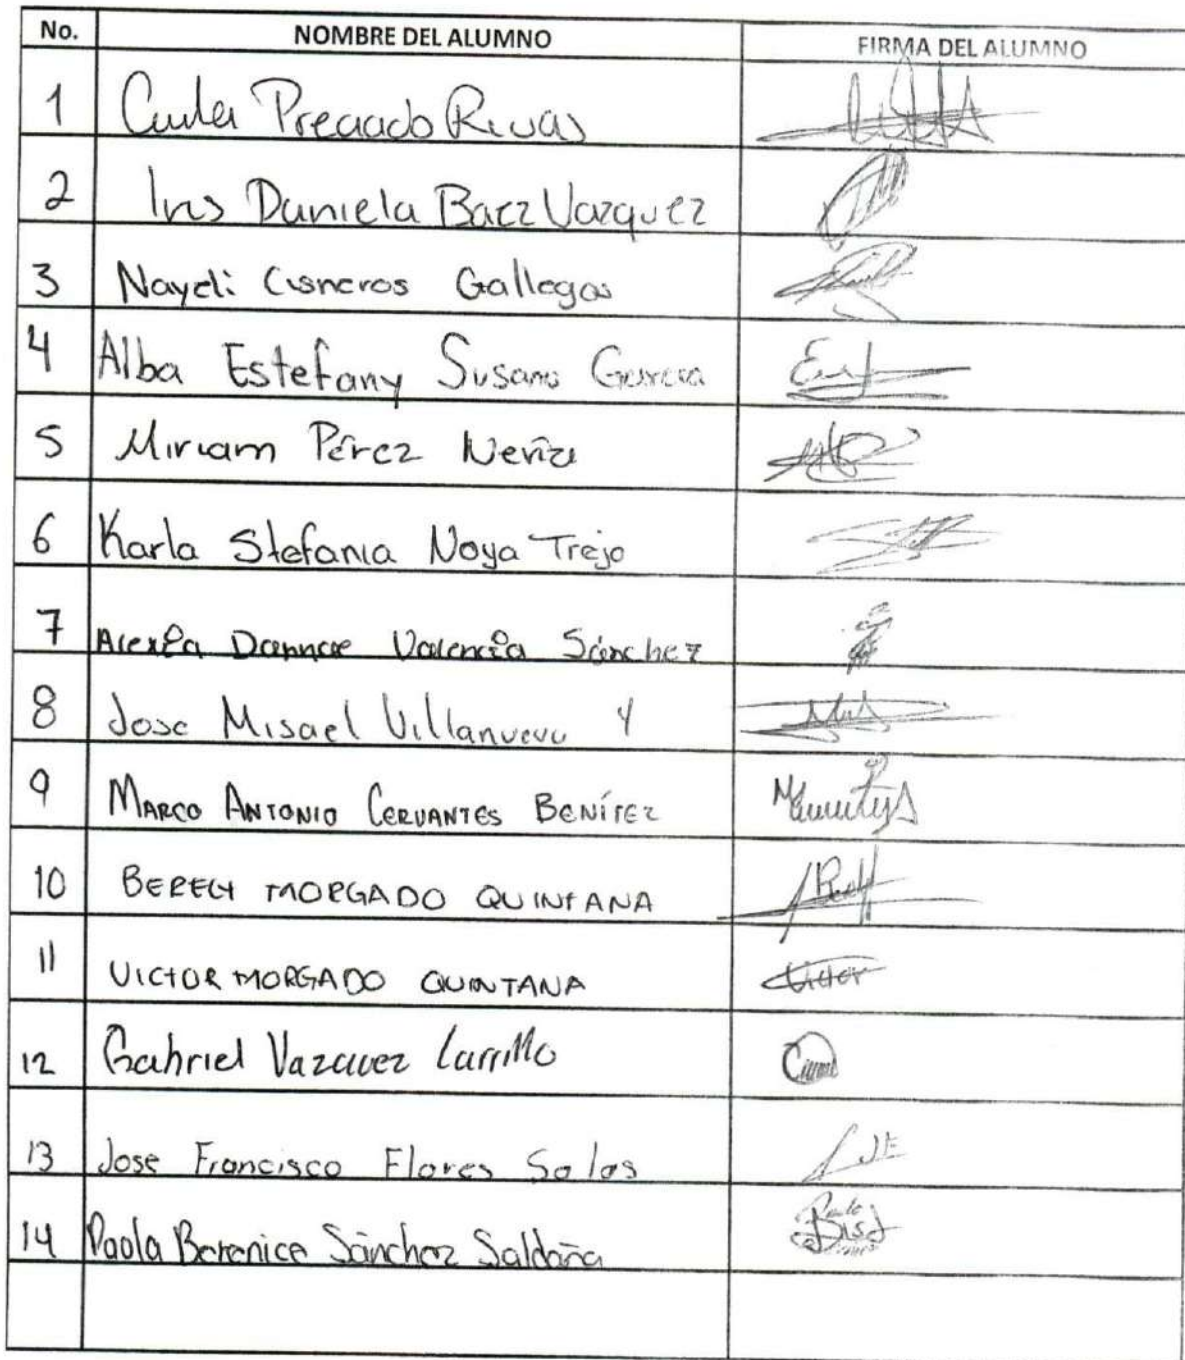 No. NOMBRE DEL ALUMNO FIRMA DEL ALUMNO
1 Preciado Rivas
2 Iris Daniela Baez Vazquez
3 Nayeli Cisneros Gallegos
4 Alba Estefany Susano Garcia
5 Miriam Pérez
6 Karla Stefania Noya Trejo
7 Alexia Dannae Valencia Sánchez
8 Jose Misael Villanueva Y
9 MARCO ANTONIO CERVANTES BENÍTEZ
10 BERELY MORGADO QUINTANA
11 VICTOR MORGADO QUINTANA Victor
12 Gabriel Vazquez Carrillo
13 Jose Francisco Flores Salas JF
14 Paola Berenice Sánchez Saldaña